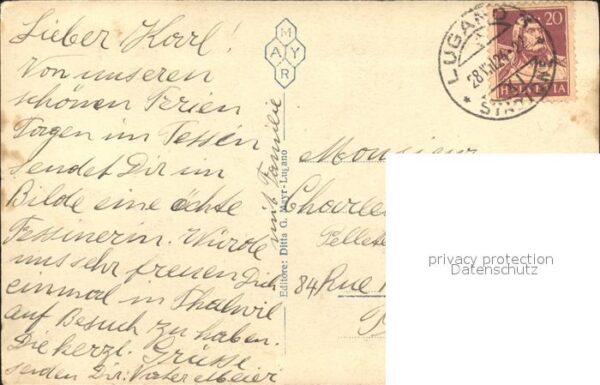 Lieber Karl!
Von unseren
schönen Ferien
Tagen im Tessin
sendet Dir im
Bilde eine ächte
Tessinerin. Würde
uns sehr freuen Dich
einmal in Thalwil
auf Besuch zu haben.
Die herzl. Grüsse
senden Dir: Vater Meier
mit Familie
MAYR
Editore: Ditta G. Mayr-Lugano
LUGANO
20
HELVETIA
Monsieur
Charles
84 Rue
privacy protection
Datenschutz